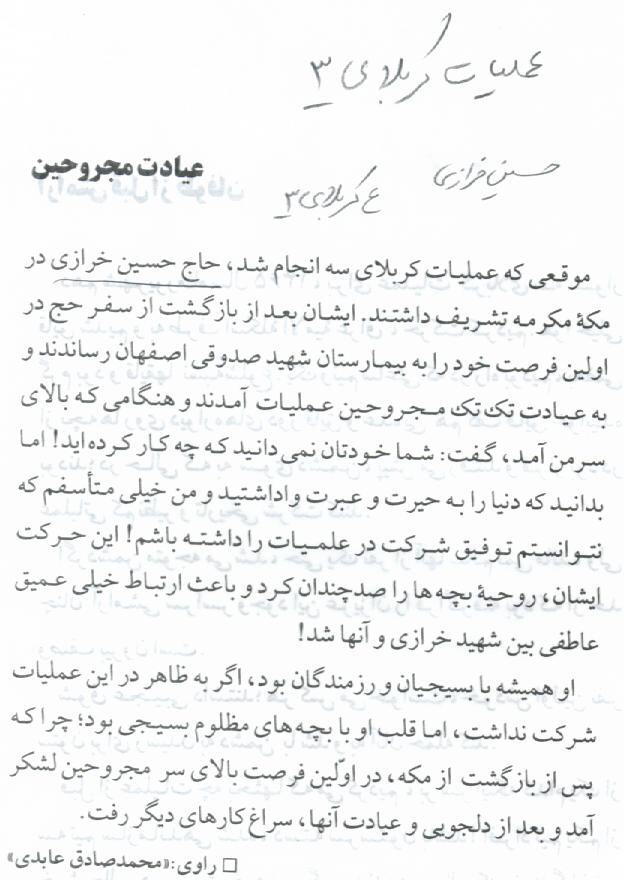 عملیات کربلای ۳
حسین خرازی
ع کربلای ۳
عیادت مجروحین
موقعی که عملیات کربلای سه انجام شد، حاج حسین خرازی در
مکهٔ مکرمه تشریف داشتند. ایشان بعد از بازگشت از سفر حج در
اولین فرصت خود را به بیمارستان شهید صدوقی اصفهان رساندند و
به عیادت تک تک مجروحین عملیات آمدند و هنگامی که بالای
سر من آمد، گفت: شما خودتان نمی‌دانید که چه کار کرده‌اید! اما
بدانید که دنیا را به حیرت و عبرت واداشتید و من خیلی متأسفم که
نتوانستم توفیق شرکت در علمیات را داشته باشم! این حرکت
ایشان، روحیهٔ بچه‌ها را صدچندان کرد و باعث ارتباط خیلی عمیق
عاطفی بین شهید خرازی و آنها شد!
او همیشه با بسیجیان و رزمندگان بود، اگر به ظاهر در این عملیات
شرکت نداشت، اما قلب او با بچه‌های مظلوم بسیجی بود؛ چرا که
پس از بازگشت از مکه، در اوّلین فرصت بالای سر مجروحین لشکر
آمد و بعد از دلجویی و عیادت آنها، سراغ کارهای دیگر رفت.
□ راوی: «محمدصادق عابدی»